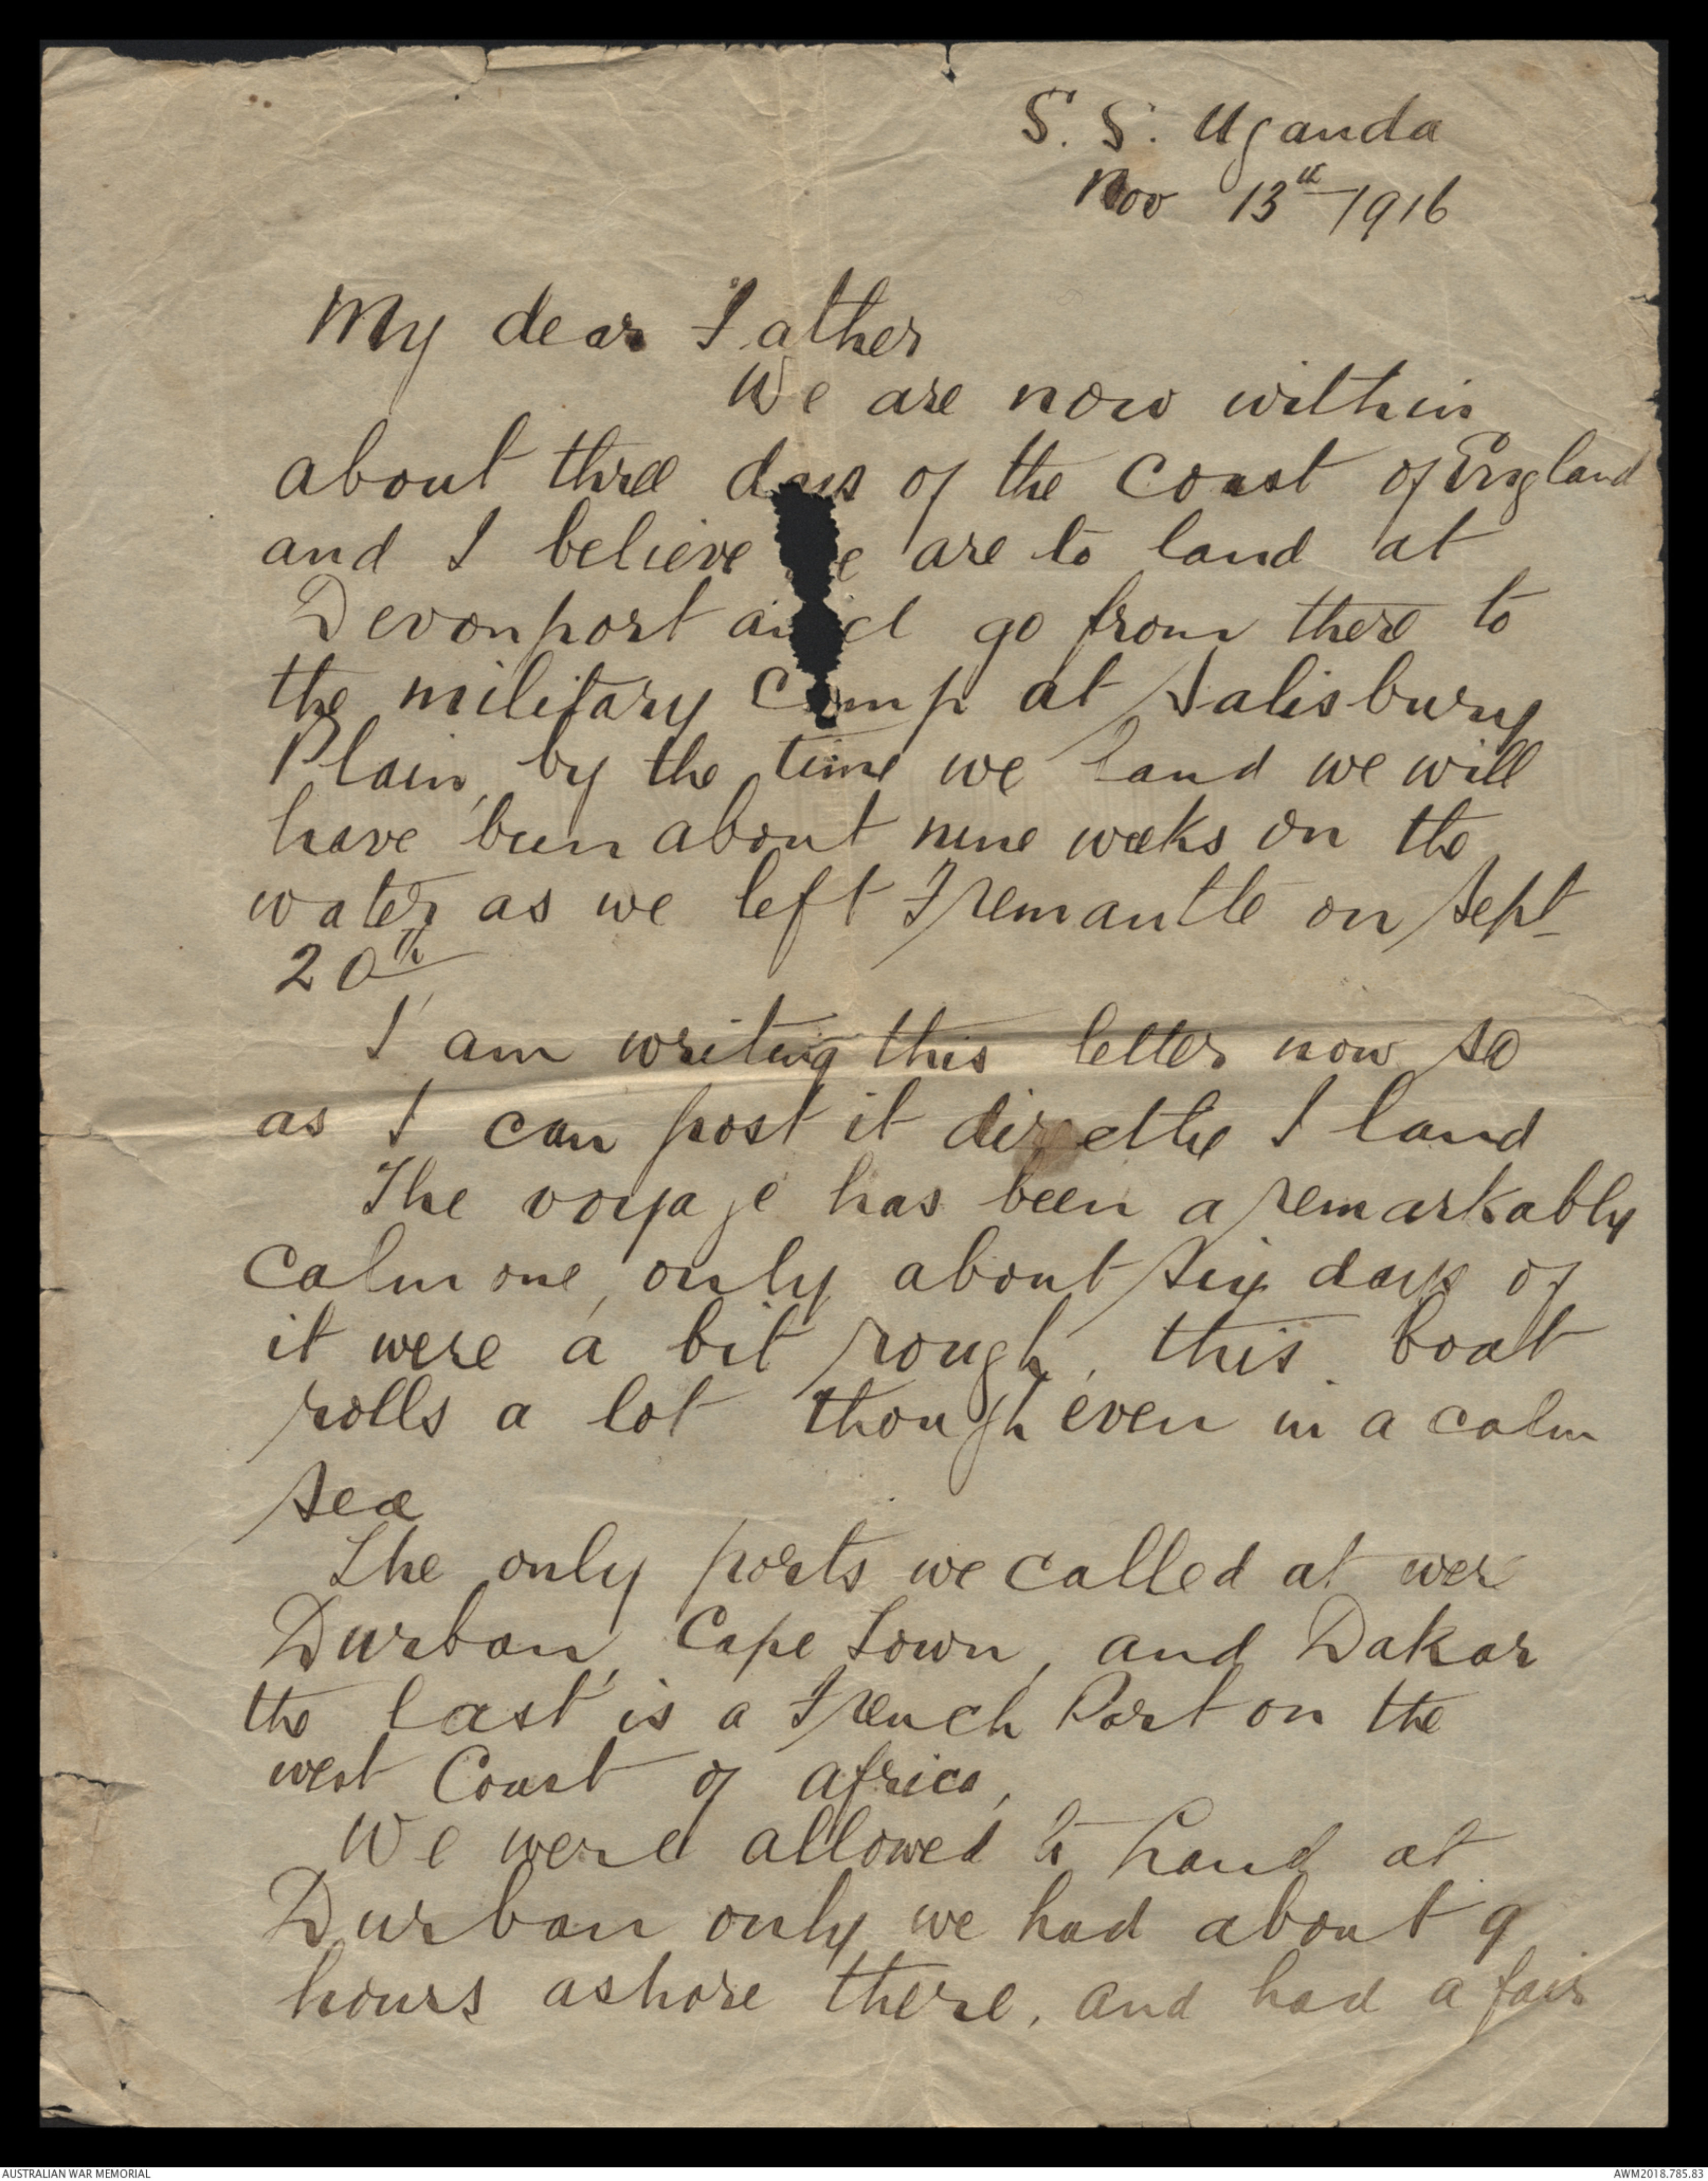 S. S. Uganda
Nov 13th 1916
My dear Father
We are now within
about three days of the coast of England
and I believe we are to land at
Devonport and go from there to
the military camp at Salisbury
Plain, by the time we land we will
have been about nine weeks on the
water as we left Fremantle on Sept
20th
I am writing this letter now so
as I can post it directly I land
The voyage has been a remarkably
calm one, only about six days of
it were a bit rough, this boat
rolls a lot though even in a calm
sea
The only ports we called at were
Durban, Cape Town, and Dakar
the last is a French Port on the
west Coast of Africa,
We were allowed to land at
Durban only we had about 9
hours ashore there, and had a fair
AUSTRALIAN WAR MEMORIAL
AWM2018.785.83